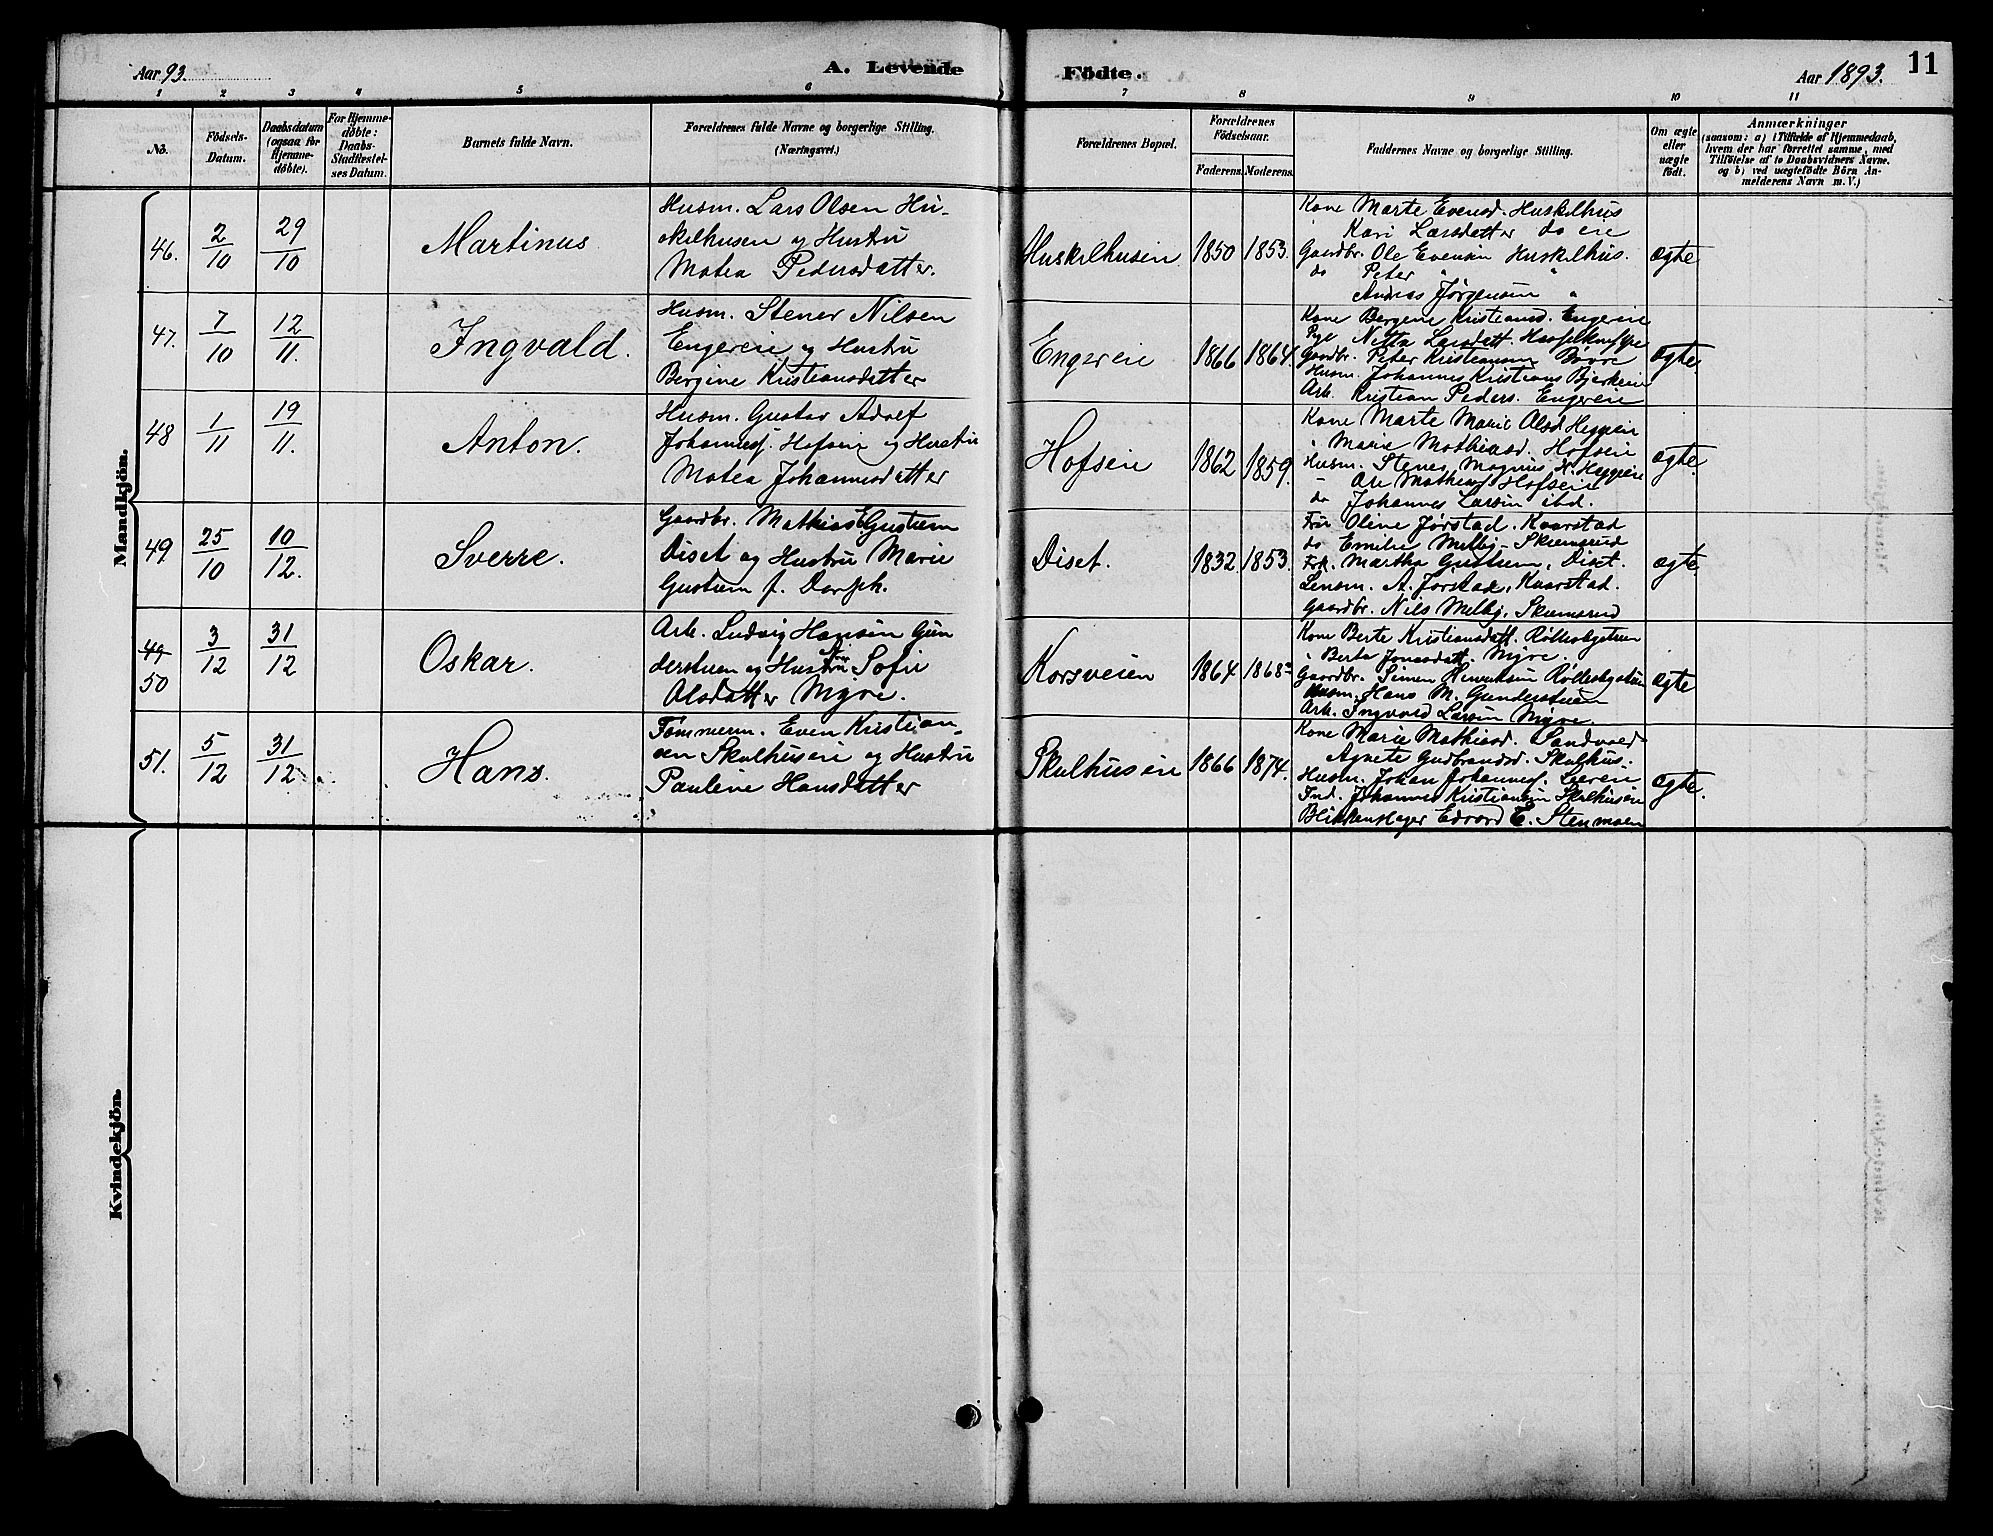 Aar 93.
A. Levende
Födte.
Aar 1893.
11
1 2 3 4 5 6 7 8 9 10 11
No.
Födsels-
Datum.
Daabsdatum
(ogsaa for
Hjemme-
døbte).
For Hjemme-
døbte:
Daabs-
Stadfæstel-
ses Datum.
Barnets fulde Navn.
Forældrenes fulde Navne og borgerlige Stilling.
(Næringsvei.)
Forældrenes Bopæl.
Forældrenes
Födselsaar.
Faderens. Moderens.
Faddernes Navne og borgerlige Stilling.
Om ægte
eller
uægte
født.
Anmærkninger
(saasom: a) i Tilfælde af Hjemmedaab,
hvem der har forrettet samme, med
Tilföielse af to Daabsvidners Navne.
og b) ved uægtefödte Börn An-
melderens Navn m. V.)
Mandkjön.
46.
2/10
29/10
Martinus
Husm. Lars Olsen Hu-
skelhusen og Hustru
Matea Pedersdatter.
Huskelhusein
1850
1853.
Kone Marte Evensd. Huskelhus
Kari Larsdatter do eie
Gaardbr. Ole Evensen Huskelhus.
do Peter " "
Andreas Jørgensen "
ægte
47.
7/10
12/11.
Ingvald.
Husm. Stener Nilsen
Engereie og Hustru
Bergine Kristiansdatter
Engereie
1866
1864.
Kone Bergine Kristiansd. Engereie
Pige Netta Larsdatt.
Gaardbr. Peter Kristiansen
Husm. Johannes Kristians Bjerkeie
Arb. Kristian Peders. Engereie
ægte
48
1/11
19/11.
Anton.
Husm. Gustav Adolf
Johanness. Hofseie og Hustru
Matea Johannesdatter
Hofseie
1862
1859.
Kone Marte Marie Olsd Heggeie
" Marie Mathiasd. Hofseie
Husm. Stener Magnus N. Heggeie
" Ole Mathias Hofseie
do Johannes Larsen ibd.
ægte.
49
25/10
10/12.
Sverre.
Gaardbr. Mathias E Gustum
Diset og Hustru Marie
Gustum f. Dorph.
Diset.
1832.
1853.
Fru Oline Jørstad. Kvarstad
do Emilie Melby. Skramsrud
Frk. Martha Gustum, Diset.
Lensm. A. Jørstad, Kvarstad.
Gaardbr. Nils Melby. Skramsrud
ægte.
49
50
3/12
31/12
Oskar.
Arb. Ludvig Hansen Gun
derstuen og Hustru Sofie
Olsdatter Myre.
Korsveien
1864
1868
Kone Berte Kristiansdatt. Rølleshgstuen
" Berta Jonasdatt. Myre.
Gaardbr. Simen Henriksen
Husm. Hans M. Gunderstuen
Arb. Ingvald Larsen Myre.
ægte
51.
5/12
31/12
Hans.
Tømmerm. Even Kristian-
sen Skulhuseie og Hustru
Pauline Hansdatter
Skulhuseie
1866
1874.
Kone Marie Mathiasd. Sandvold
Agnete Gudbrandsd. Skulhus.
Husm. Johan Johanness. Liereie
Ind. Johannes Kristiansen Skulhuseie
Blikkenslager Edvard E. Stenmoen
ægte.
Kvindekjön.